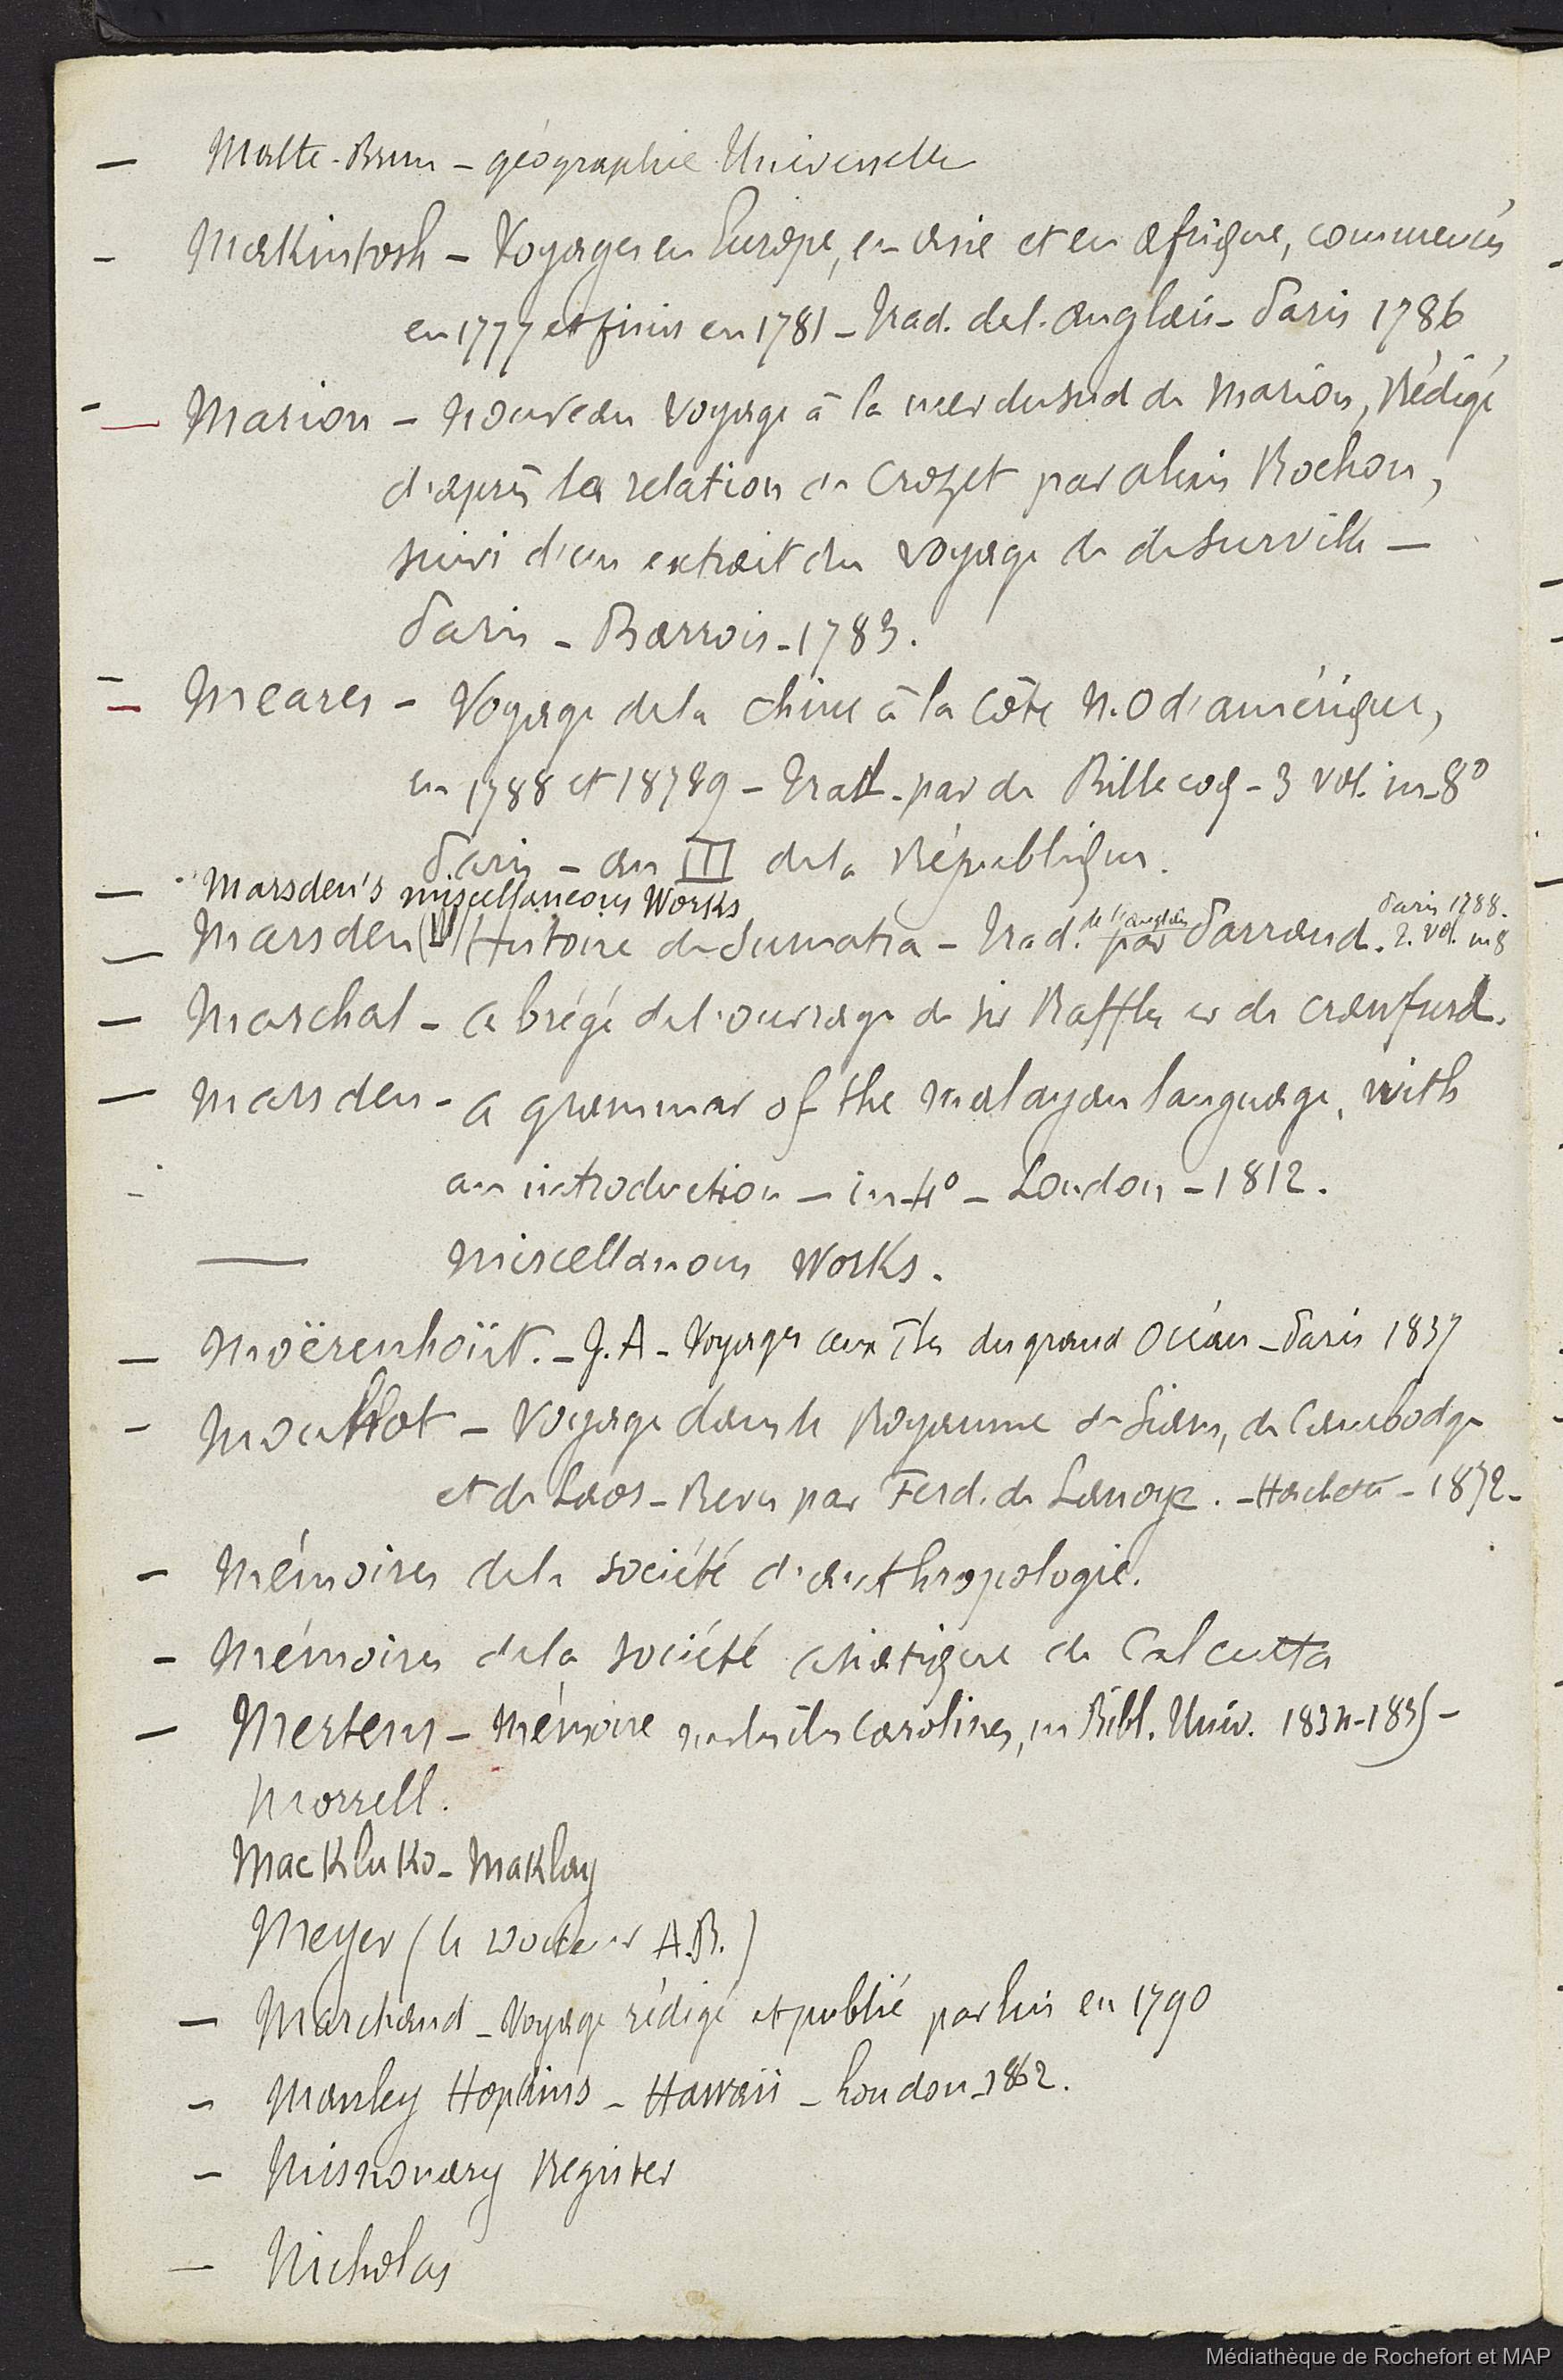 — Malte-Brun - géographie Universelle
- Makintosh - Voyages en Europe, en asie et en afrique, commencés
en 1777 et finis en 1781 - Trad. de l'anglais - Paris 1786
- Marion - nouveau voyage à la mer du sud de Marion, Rédigé
d'après la relation de Crozet par alexis Rochon,
suivi d'un extrait du voyage de de Surville —
Paris - Barrois - 1783.
- Meares - Voyage de la chine à la Côte N.O d'amérique,
en 1788 et 18789 - Trad. par de Billecoq - 3 vol. in-8º
Paris - an III de la République.
— Marsden's miscellaneous Works
— Marsden (W) Histoire de Sumatra - Trad. de l'anglais par Parraud. Paris 1788. 2. vol. in 8
— Marchal - abrégé de l'ouvrage de sir Raffles et de Crawfurd.
— Marsden - a grammar of the malayan language, with
an introduction — in-4º - London - 1812.
— Miscellanous Works.
— Moërenhoüt. - J. A - Voyages aux îles du grand Océan - Paris 1837
- Mouhot - Voyage dans le Royaume de Siam, de Cambodge
et de Laos - Revu par Ferd. de Lanoye. - Hachette - 1872 -
- Mémoires de la société d'anthropologie.
- Mémoires de la société asiatique de Calcutta
— Mertens - Mémoire sur les îles Carolines, in Bibl. Univ. 1834-1835 -
Morrell.
Mac Kluko - Maklay
Meyer (le Docteur A.B.)
— Marchand - Voyage rédigé et publié par lui en 1790
- Manley Hopkins - Hawaii - London - 1862.
- Missionary Register
— Nicholas
Médiathèque de Rochefort et MAP